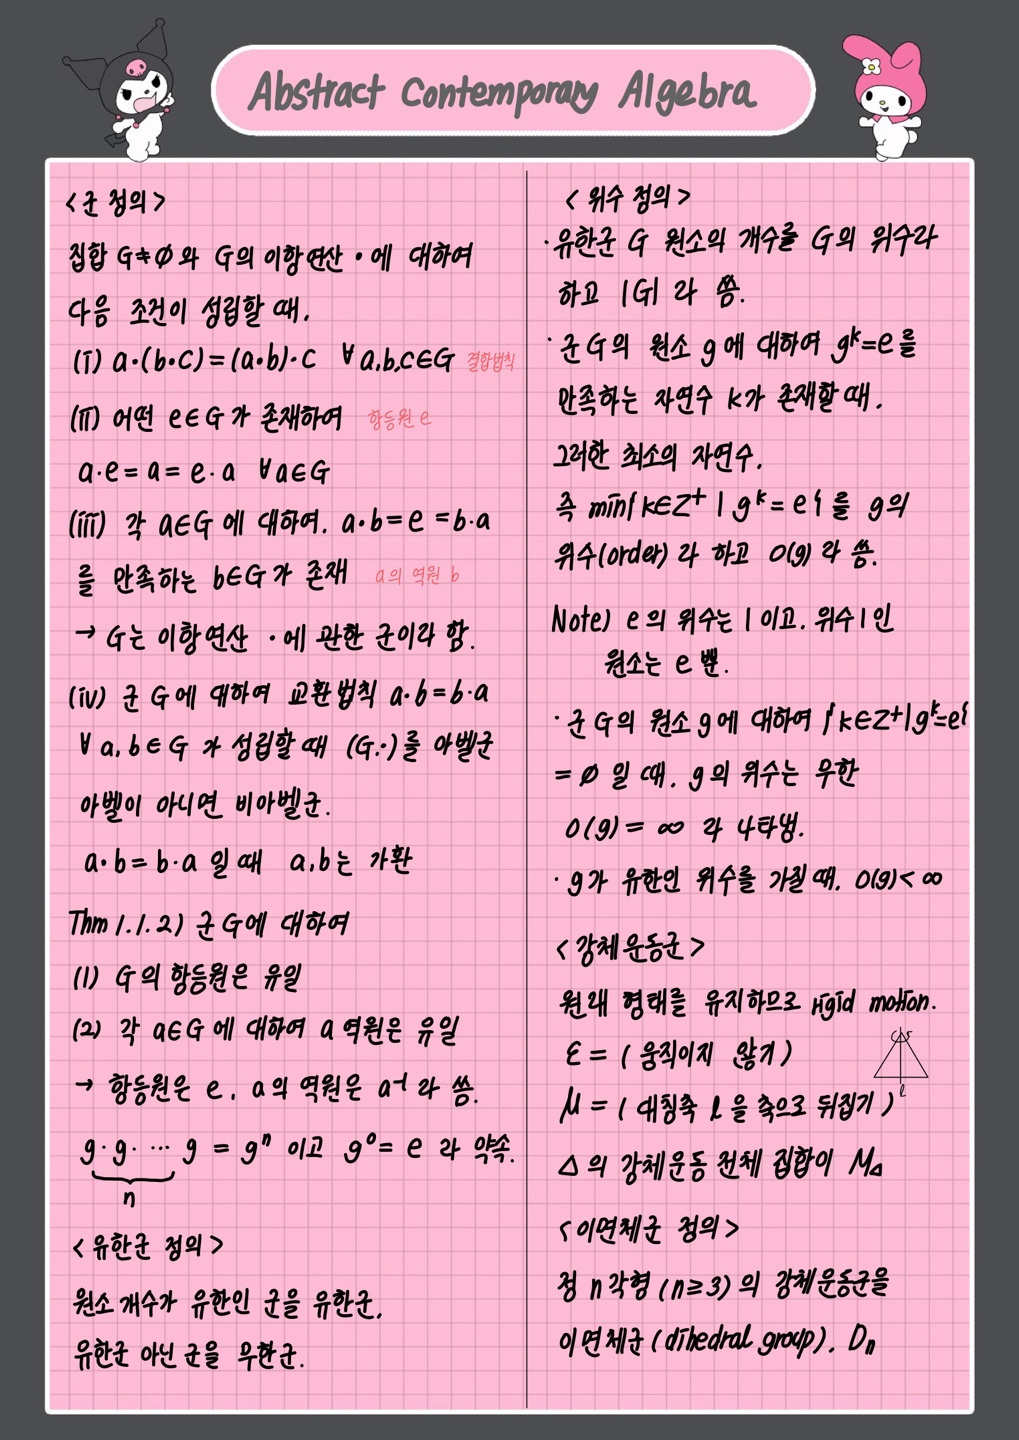 Abstract Contemporary Algebra
<군 정의>
집합 G≠∅와 G의 이항연산 •에 대하여
다음 조건이 성립할 때,
(i) a•(b•c)=(a•b)•c ∀a,b,c∈G 결합법칙
(ii) 어떤 e∈G가 존재하여 항등원 e
a·e=a=e·a ∀a∈G
(iii) 각 a∈G에 대하여, a·b=e=b·a
를 만족하는 b∈G가 존재 a의 역원 b
→ G는 이항연산 •에 관한 군이라 함.
(iv) 군 G에 대하여 교환법칙 a•b=b•a
∀a,b∈G가 성립할 때 (G,·)를 아벨군
아벨이 아니면 비아벨군.
a•b=b·a일 때 a,b는 가환
Thm 1.1.2) 군 G에 대하여
(1) G의 항등원은 유일
(2) 각 a∈G에 대하여 a 역원은 유일
→ 항등원은 e, a의 역원은 a⁻¹라 씀.
g·g·⋯g = gⁿ 이고 g⁰=e라 약속.
n
<유한군 정의>
원소 개수가 유한인 군을 유한군,
유한군 아닌 군을 무한군.
<위수 정의>
·유한군 G 원소의 개수를 G의 위수라
하고 |G|라 씀.
·군 G의 원소 g에 대하여 gᵏ=e를
만족하는 자연수 k가 존재할 때,
그러한 최소의 자연수,
즉 min{k∈Z⁺|gᵏ=e}를 g의
위수(order)라 하고 O(g)라 씀.
Note) e의 위수는 1이고, 위수 1인
원소는 e뿐.
·군 G의 원소 g에 대하여 {k∈Z⁺|gᵏ=e}
=∅일 때, g의 위수는 무한
O(g)=∞라 나타냄.
·g가 유한인 위수를 가질 때, O(g)<∞
<강체운동군>
원래 형태를 유지하므로 rigid motion.
ε=(움직이지 않기)
r
l
μ=(대칭축 l을 축으로 뒤집기)
△의 강체운동 전체 집합이 M△
<이면체군 정의>
정 n각형 (n≥3)의 강체운동군을
이면체군(dihedral group), Dₙ